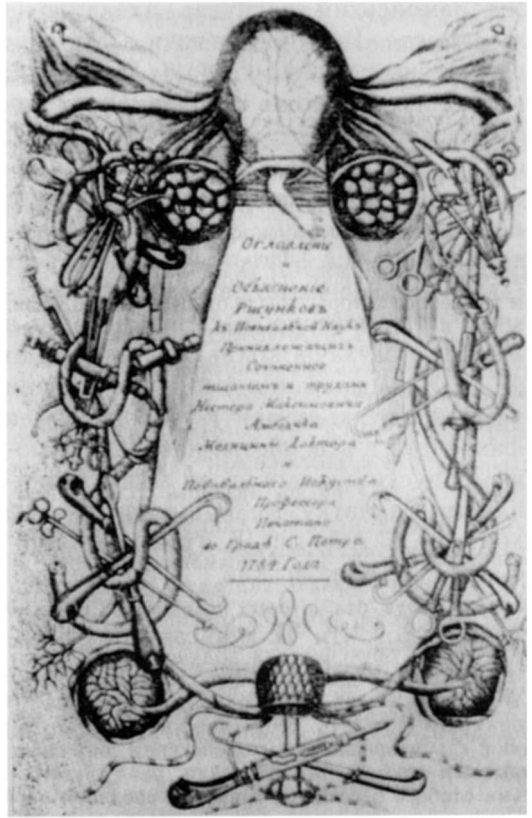 Оглавленіе
и
Объясненіе
Рисунковъ
къ Повивальной Наукѣ
Принадлежащихъ
Сочиненное
тщаніемъ и трудами
Нестора Максимовича
Амбодика
Медицины Доктора
и
Повивального Искуства
Профессора
Печатано
во Градѣ С. Петра
1784 Года